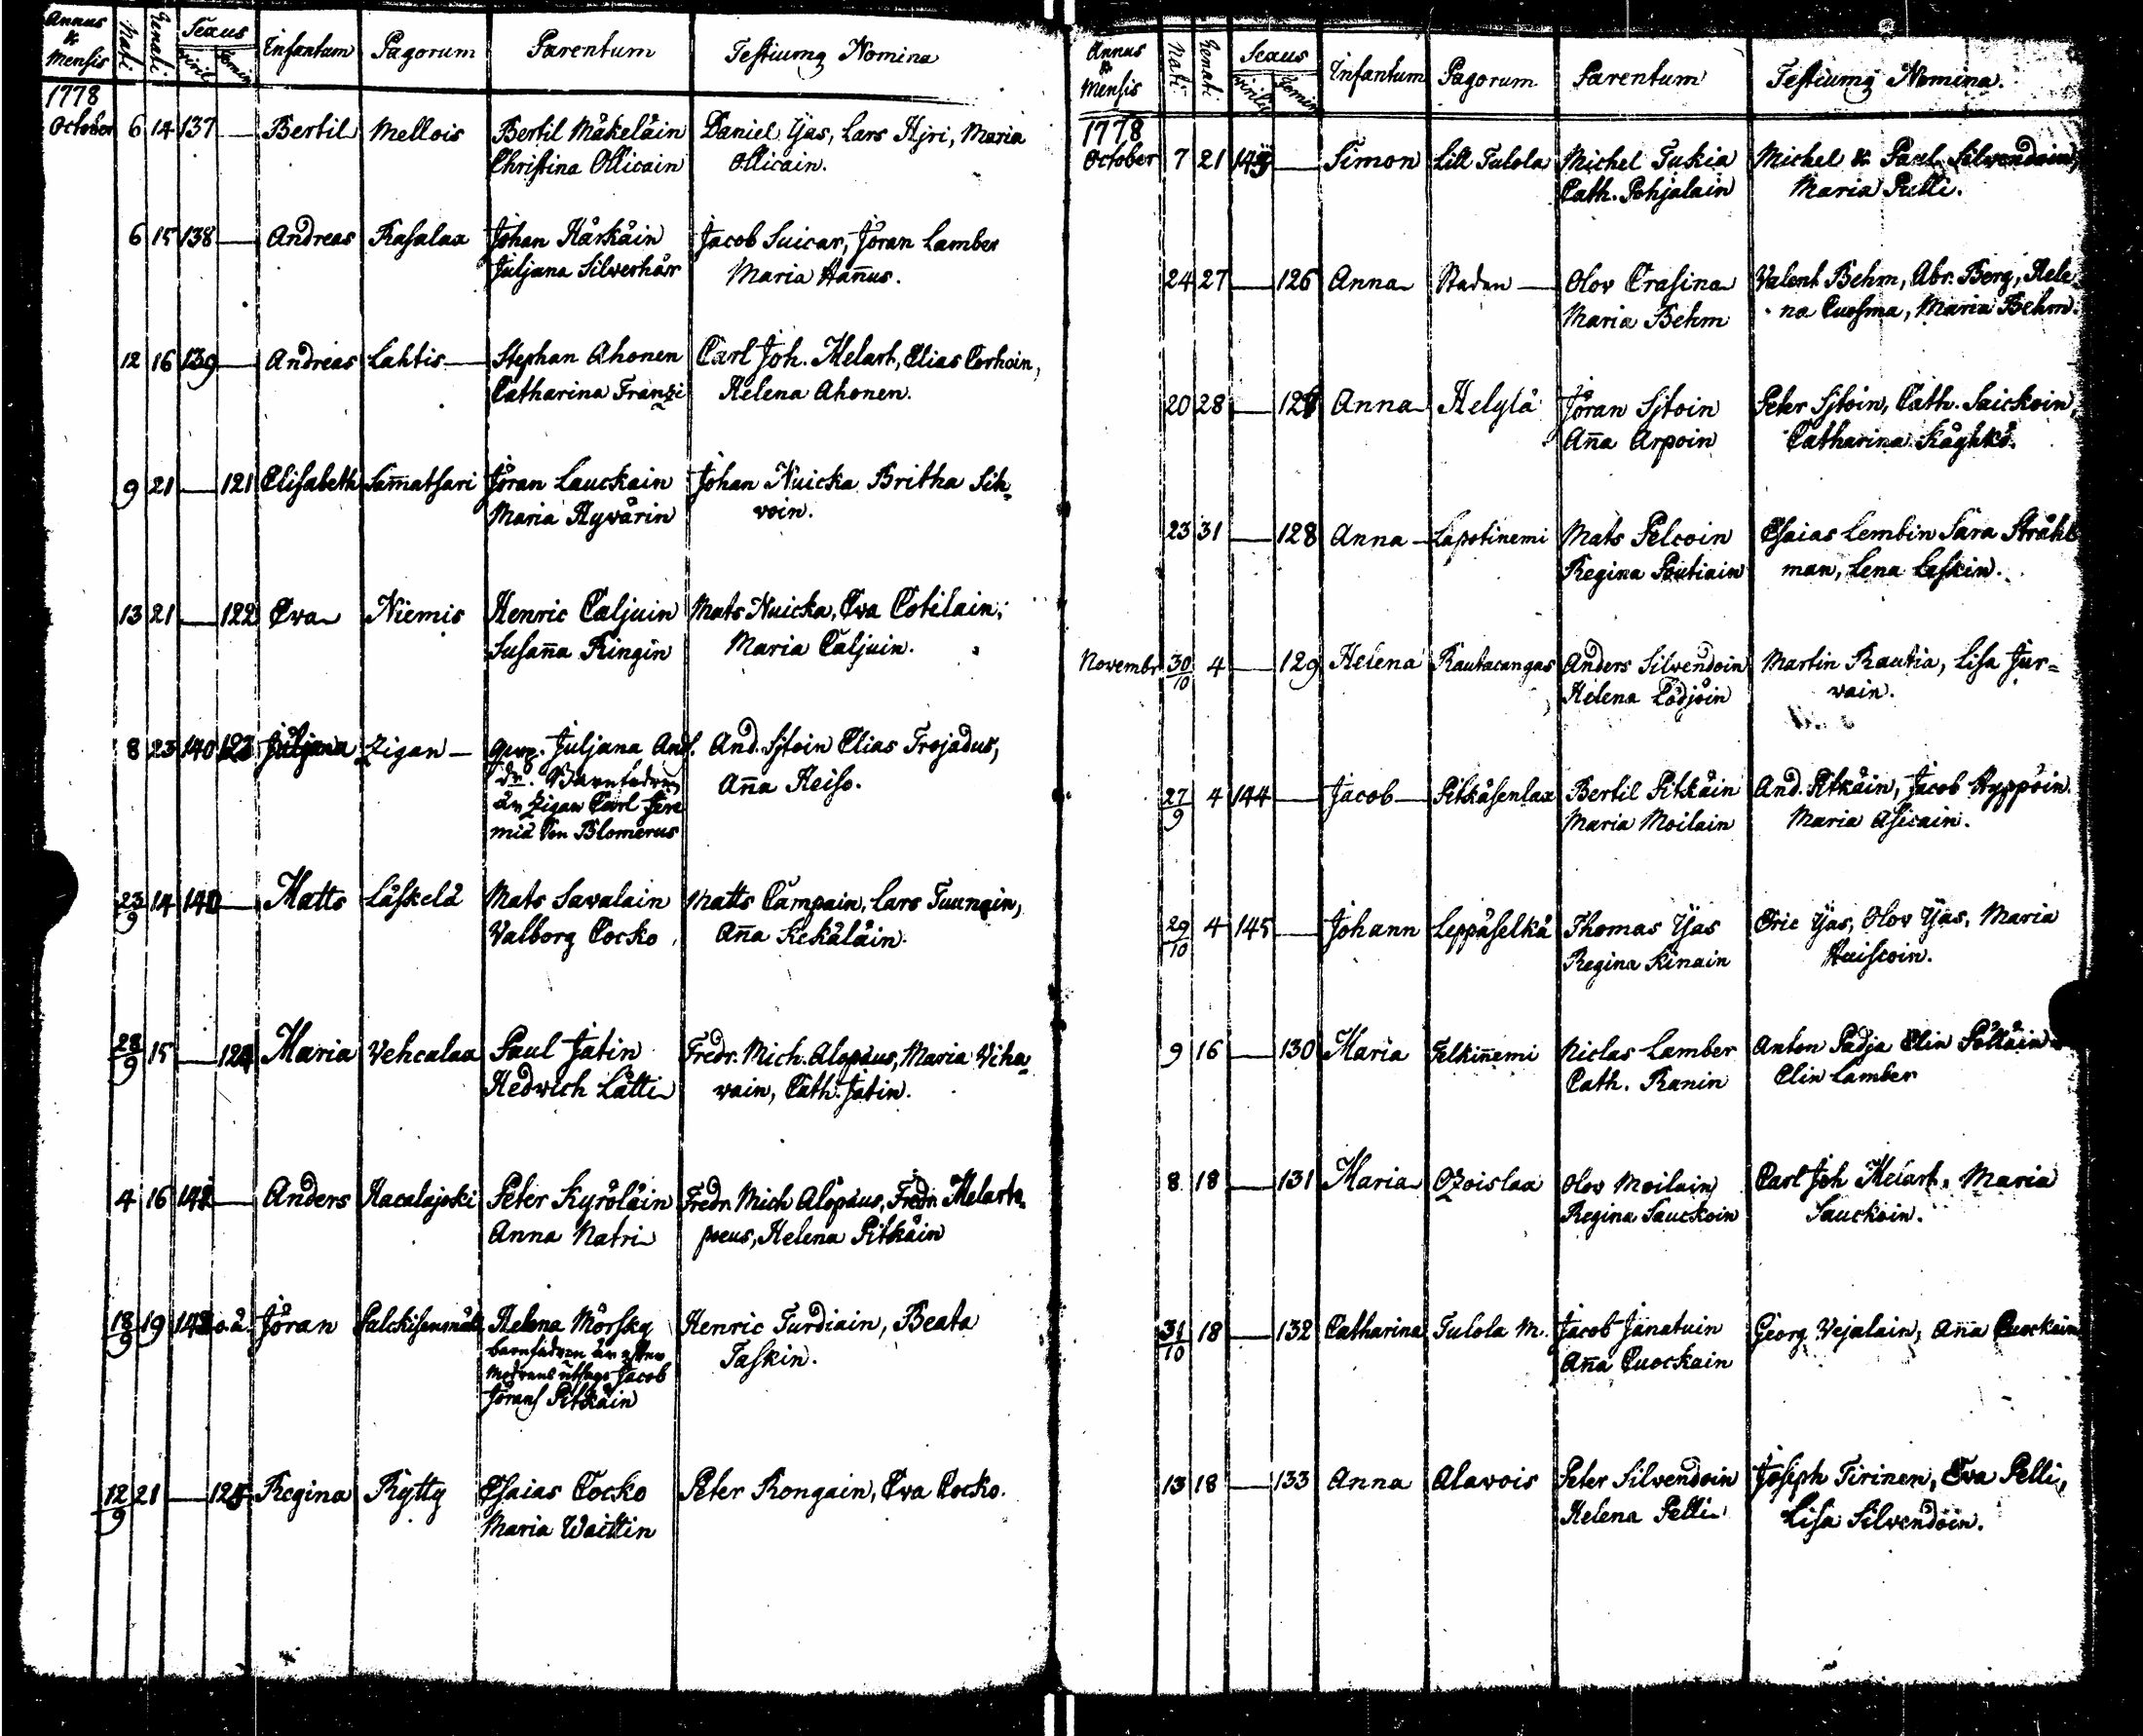 Annus & Mensis Nati Renati Sexus Infantum Pagorum Parentum Testiumq Nomina
viril femin
1778
October 6 14 137 — Bertil Mellois Bertil Mäkeläin Daniel Yas, Lars Hjri, Maria
Christina Ollicain Ollicain.
6 15 138 — Andreas Rasalax Johan Härkäin Jacob Suicar, Jöran Lamber
Juljana Silverhår Maria Han̄us.
12 16 139 — Andreas Lahtis — Stephan Ahonen Carl Joh. Melart, Elias Corhoin,
Catharina Franzi Helena Ahonen.
9 21 — 121 Elisabeth Sam̄atsari Jöran Lauckain Johan Nuicka Britha Sih-
Maria Hyvärin voin.
13 21 — 122 Eva Niemis Henric Caljuin Mats Nuicka, Eva Cotilain,
Susan̄a Ringin Maria Caljuin.
8 23 140 123 Juljana Zigan — Juljana And. And. Sjtoin Elias Trojadus,
dr. Barnfadren An̄a Heiso.
är Zigan Carl Jere
mia Son Blomerus
23/9 14 140 — Matts Läskelä Mats Savalain Matts Campain, Lars Tuunain,
Valborg Cocko An̄a Kekäläin.
28/9 15 — 124 Maria Vehcalax Paul Jatin Fredr. Mich. Alopäus, Maria Viha-
Hedwich Lätti vain, Cath. Jatin.
4 16 142 — Anders Hacalajoki Peter Kyröläin Fredr. Mich Alopäus, Fredr. Melart-
Anna Natri poeus, Helena Pitkäin
18/9 19 142 o.ä. Jöran Palckisenmäk Helena Mörsky Henric Turdiain, Beata
barnfadren är efter Taskin.
modrens utsago Jacob
Jörans Pitkäin
12/9 21 — 125 Regina Rytty Esaias Cocko Peter Rongain, Eva Cocko.
Maria Waittin
Annus & Mensis Nati Renati Sexus Infantum Pagorum Parentum Testiumq Nomina.
virilis femin
1778
October 7 21 143 — Simon Lill Tulola Michel Tukia Michel & Paul Silvendoin,
Cath. Pohjalain Maria Pelli.
24 27 — 126 Anna Staden — Olov Crasina Valent Behm, Abr. Berg, Hele-
Maria Behm na Cuosma, Maria Behm.
20 28 — 127 Anna Helylä Jöran Sjtoin Peter Sjtoin, Cath. Saickoin,
An̄a Arpoin Catharina Käyhkö.
23 31 — 128 Anna — Lapotinemi Mats Pelcoin Esaias Lembin Sara Stråhl-
Regina Poutiain man, Lena Leskin.
Novembr 30/10 4 — 129 Helena Rautacangas Anders Silvendoin Martin Rautia, Lisa Jur=
Helena Lodjoin vain.
27/9 4 144 — Jacob — Pitkäsenlax Bertil Pitkäin And. Pitkäin, Jacob Hyppöin.
Maria Moilain Maria Asicain.
29/10 4 145 — Johann Leppäselkä Thomas Yas Eric Yas, Olov Yas, Maria
Regina Kinain Huiscoin.
9 16 — 130 Maria Telkin̄emi Niclas Lamber Anton Padja Elin Pölläin
Cath. Ranin Elin Lamber
8 18 — 131 Maria Ozoislax Olov Moilain Carl Joh Melart, Maria
Regina Sauckoin Sauckoin.
31/10 18 — 132 Catharina Tulola M. Jacob Jänatuin Georg Vejalain, An̄a Cuockain
An̄a Cuockain
13 18 — 133 Anna Alavois Peter Silvendoin Joseph Tirinen, Eva Pelli,
Helena Pelli Lisa Silvendoin.